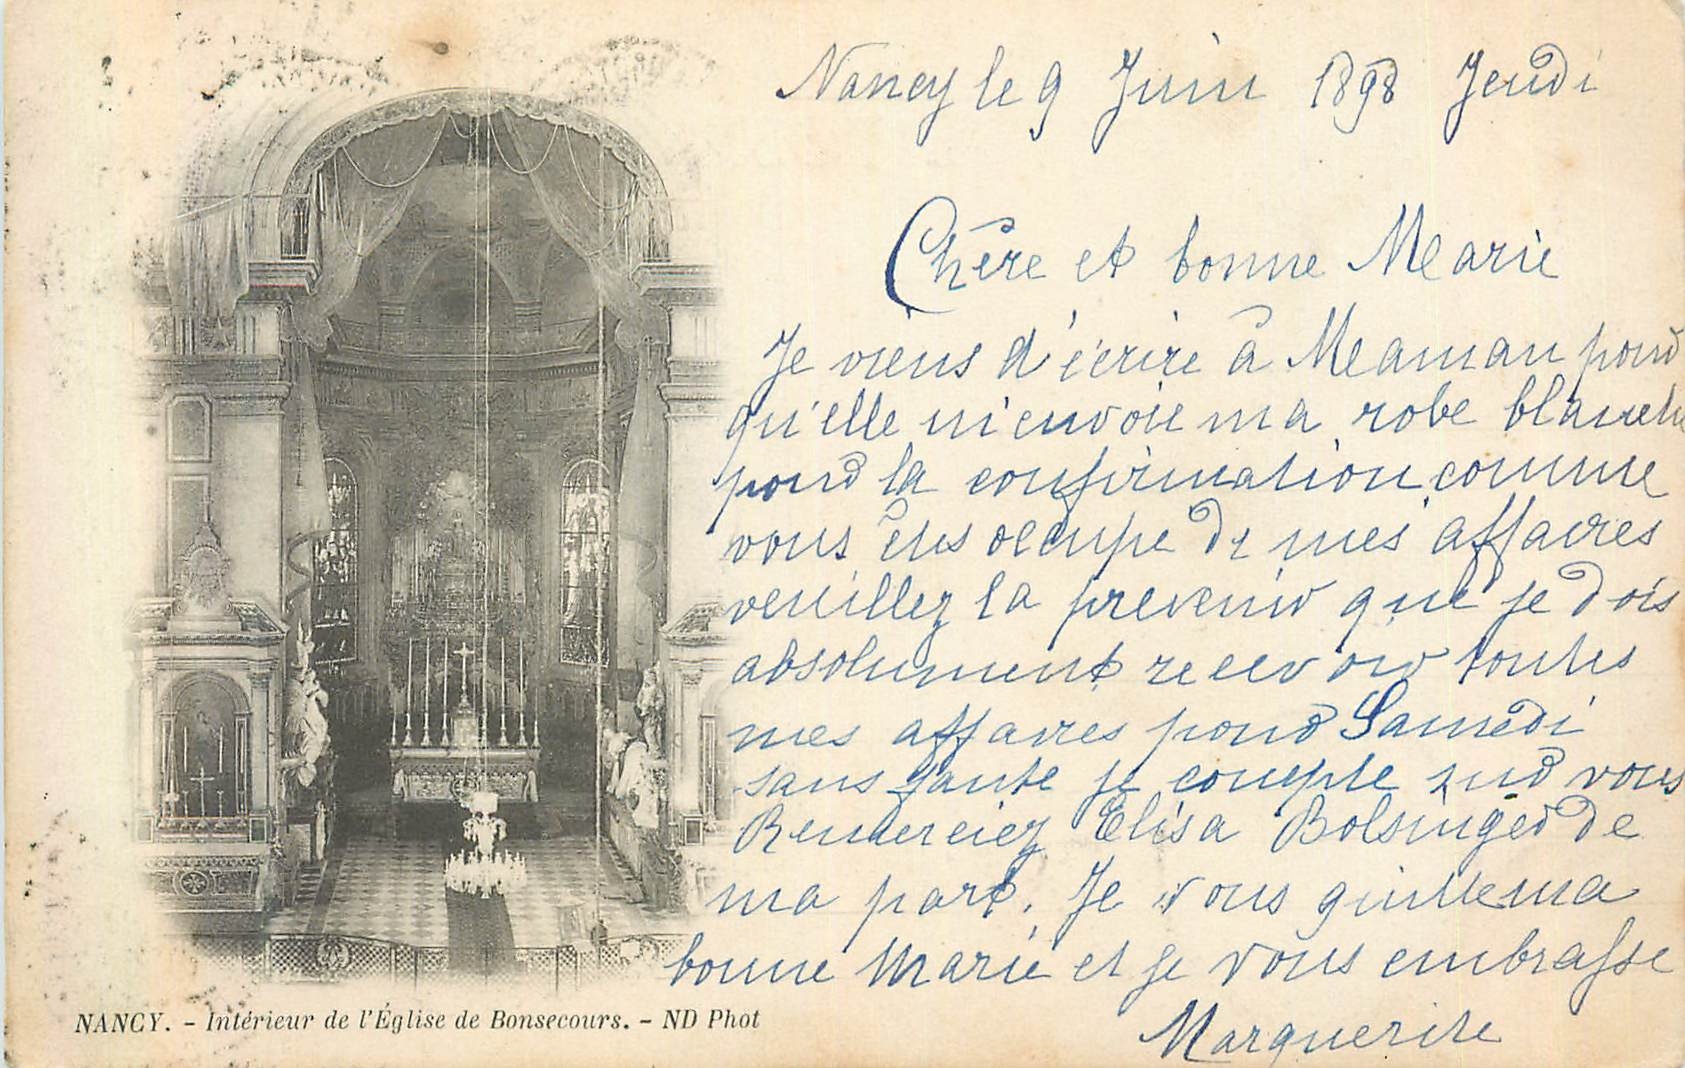 Nancy le 9 Juin 1898 Jeudi
Chère et bonne Marie
Je viens d'écrire à Maman pour
qu'elle m'envoie ma robe blanche
pour la confirmation, comme
vous êtes occupé de mes affaires
veuillez la prevenir que je dois
absolument recevoir toutes
mes affaires pour Samedi
sans faute je compte sur vous
Remerciez Elisa Bolsinger de
ma part. Je vous quitte ma
bonne Marie et je vous embrasse
Marguerite
NANCY. - Intérieur de l'Église de Bonsecours. - ND Phot